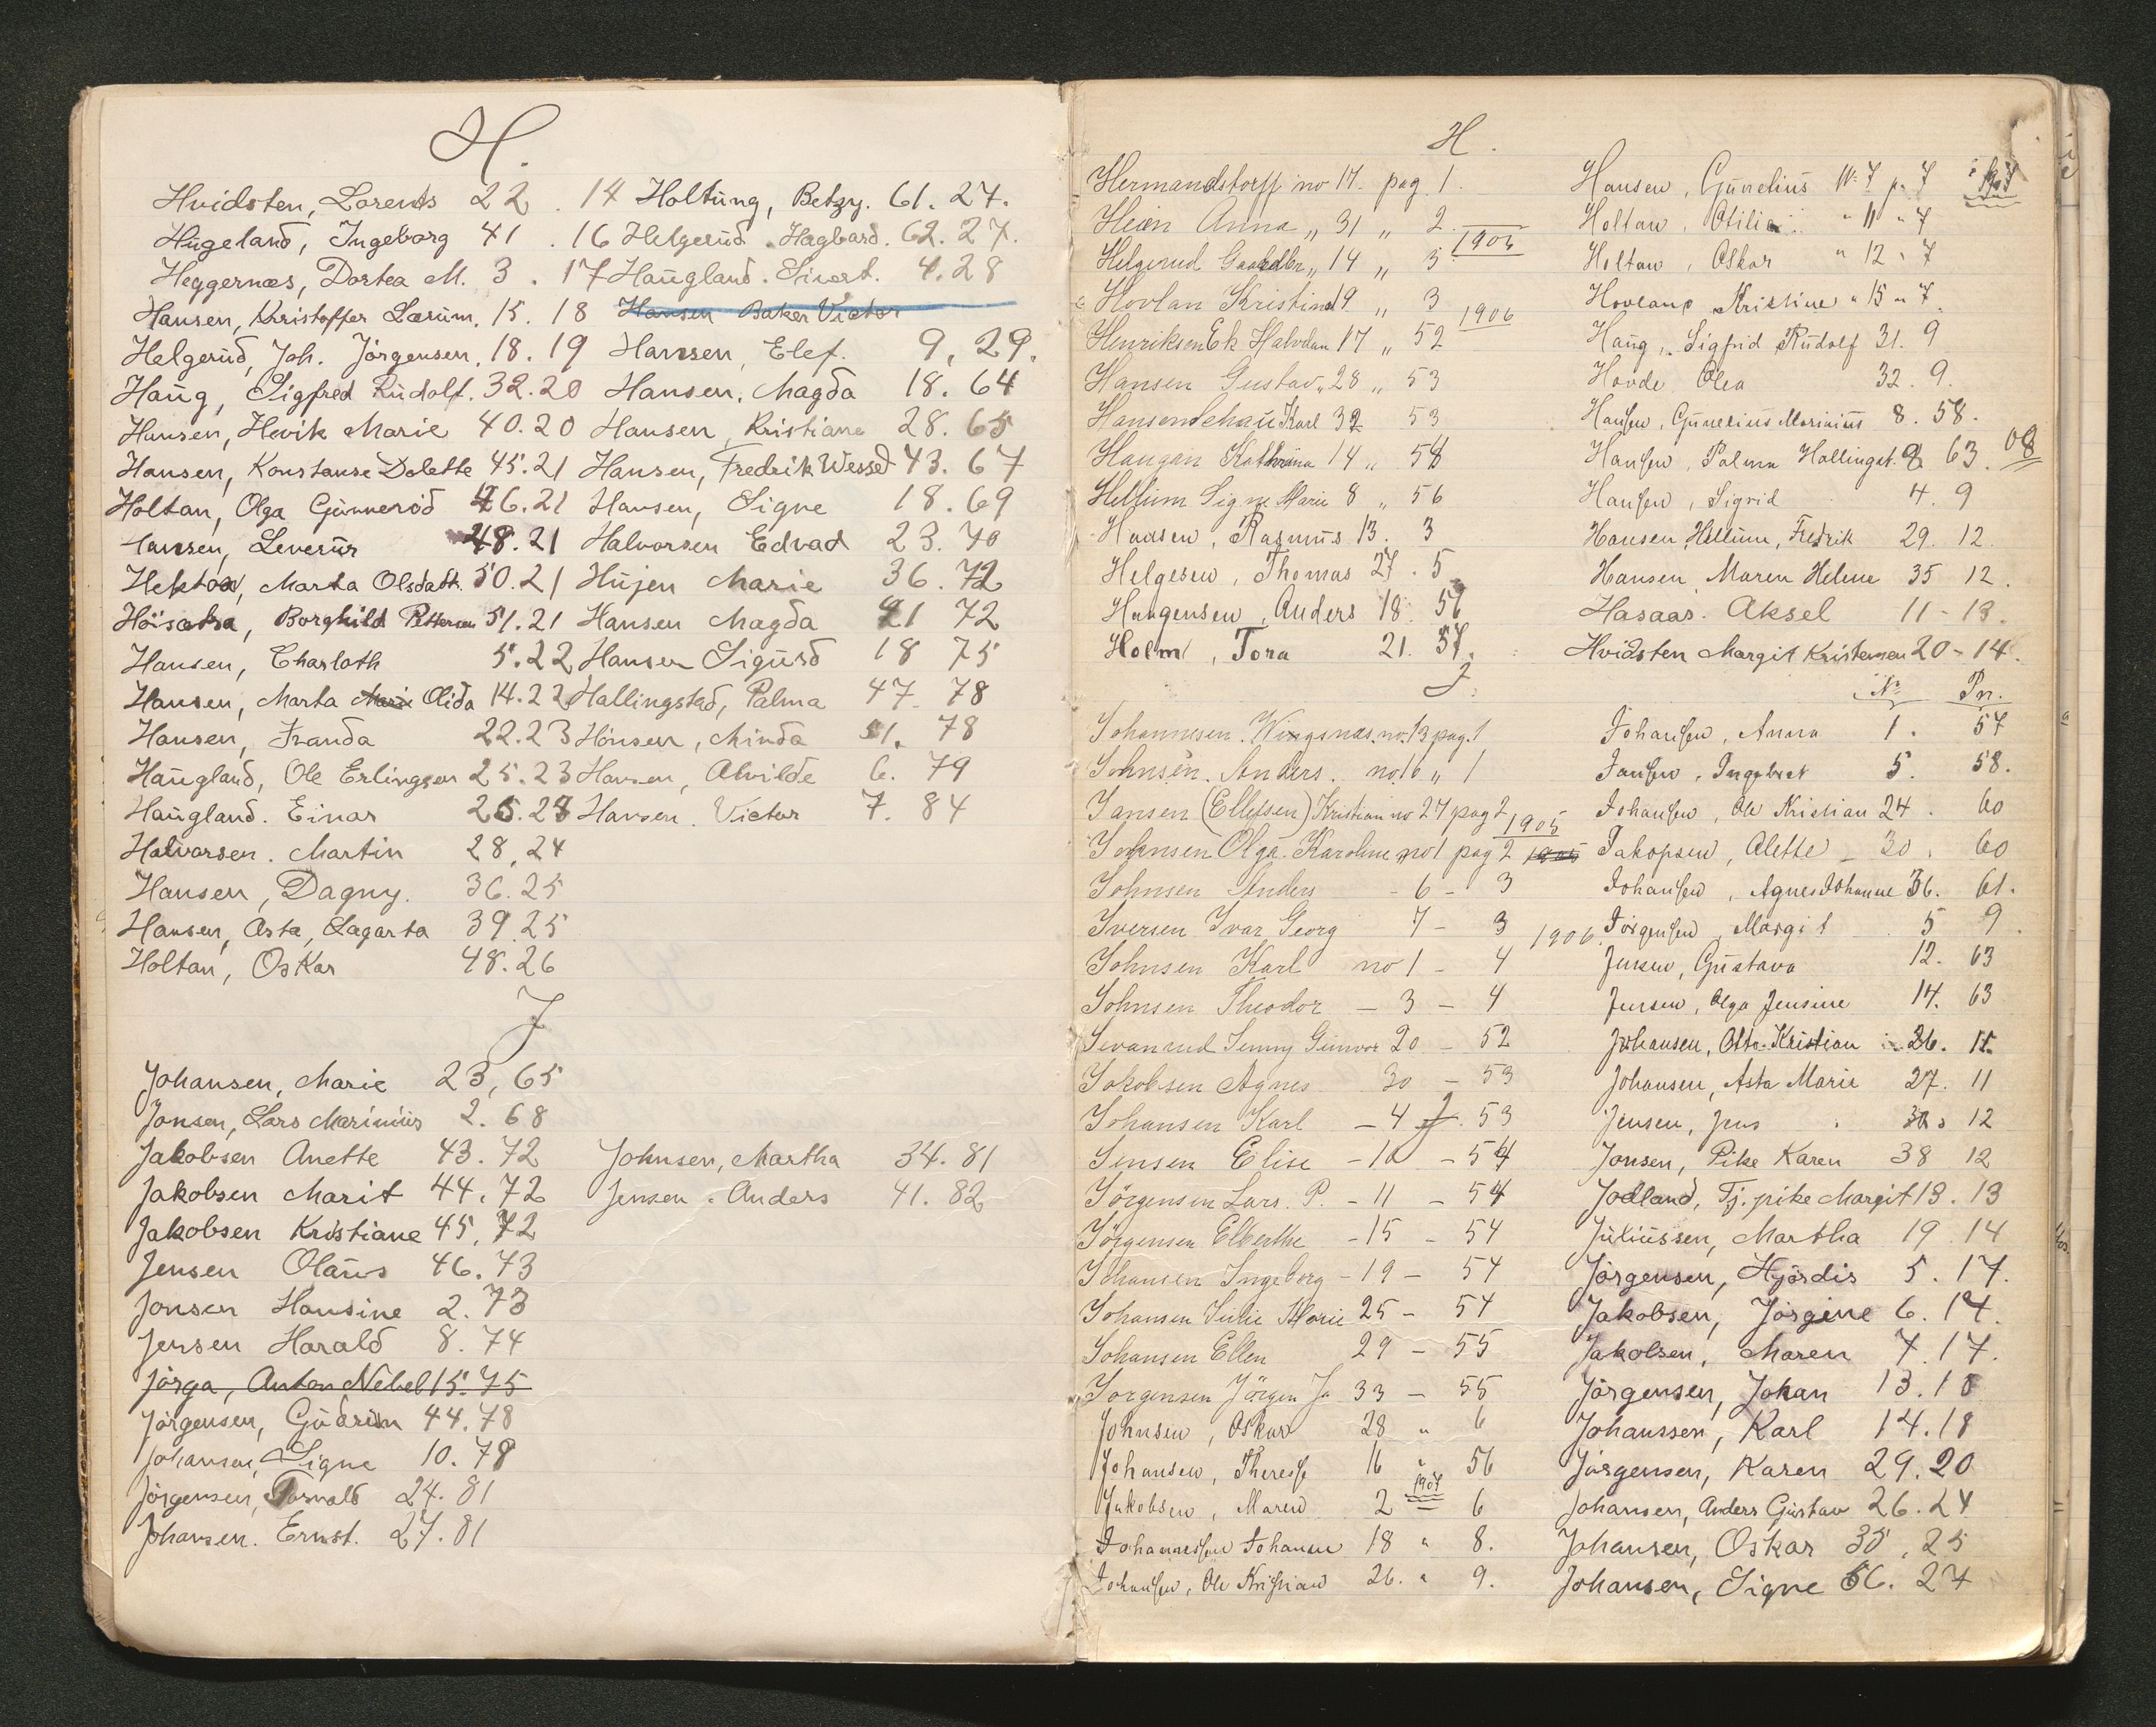 H.
Hvidsten, Lorents 22 . 14
Hügeland, Ingeborg 41 . 16
Heggernæs, Dortea M. 3 . 17
Hansen, Kristoffer Lørüm. 15. 18
Helgerüd, Joh. Jörgensen. 18. 19
Haüg, Sigfred Rüdolf. 32. 20
Hansen, Hevik Marie 40. 20
Hansen, Konstanse Dolette 45. 21
Holtan, Olga Günneröd 46. 21
Hansen, Leverür 48. 21
Hekton, Marta Olsdatt. 50. 21
Höisætra, Borghild Pettersen 51. 21
Hansen, Charloth 5. 22
Hansen, Marta Marie Olida 14. 22
Hansen, Franda 22. 23
Haügland, Ole Erlingsen 25. 23
Haügland. Einar 26. 23
Halvorsen. Martin 28, 24
Hansen, Dagny. 36. 25
Hansen, Asta, Lagarta 39. 25
Holtan, Oskar 48. 26
Holtüng, Betzy. 61. 27.
Helgerüd. Hagbard. 62. 27.
Haügland. Sivert. 4. 28
Hansen Baker Victor
Hansen, Elef. 9, 29.
Hansen, Magda 18. 64
Hansen, Kristiane 28. 65
Hansen, Fredrik Wessed 43. 67
Hansen, Signe 18. 69
Halvorsen Edvad 23. 70
Hüjen Marie 36. 72
Hansen Magda 41 72
Hansen Sigürd 18 75
Hallingstad, Palma 47. 78
Hönsen, Minda 51. 78
Hansen, Alvilde 6. 79
Hansen. Victor 7. 84
J
Johansen, Marie 23, 65
Jonsen, Lars Mariniüs 2. 68
Jakobsen Anette 43. 72
Jakobsen Marit 44, 72
Jakobsen Kristiane 45, 72
Jensen Olaüs 46. 73
Jonsen Hansine 2. 73
Jensen Harald 8. 74
Jörga, Anton Nebel 15. 75
Jörgensen, Güdrün 44. 78
Johansen, Signe 10. 78
Jörgensen, Torvald 24. 81
Johansen. Ernst. 27. 81
Johnsen, Martha 34. 81
Jensen. Anders 41. 82
H.
Hermandstorff no 17. pag 1.
Heien Anna „ 31 „ 2.
1906
Helgerud „ 14 „ 3
Hovlan Kristine 19 „ 3
1906
Henriksen Ek Halvdan 17 „ 52
Hansen Gustav „ 28 „ 53
Hansen Schaü Karl 32 53
Haugan Kathrina 14 „ 54
Hellüm Signe Marie 8 „ 56
Haasen, Rasmüs 13. 3
Helgesen, Thomas 27. 5
Haagensen, Anders 18. 56
Holm, Tora 21. 57.
Hansen, Günelius No 7 p. 7 1907
Holtan, Otilie „ 11 „ 7
Holtan, Oskar „ 12 „ 7
Hovland Kristine „ 15 „ 7
Haüg, Sigfrid Rüdolf 31. 9
Hovde Olea 32. 9.
Hansen, Günelius Mariniüs 8. 58.
Hansen, Palma Hallingst. 8 63. 08
Hansen, Sigrid 4. 9
Hansen, Hellüm, Fredrik 29. 12
Hansen Maren Helene 35 12.
Hasaas. Aksel 11 - 13.
Hvidsten Margit Kristensen 20 - 14.
J.
Johannesen. Wingsnæs. no. 13 pag. 1
Johnsen. Anders. no 16 „ 1
Jansen (Ellefsen) Kristian no 27 pag 2
1905
Johnsen Olga. Karoline no 1 pag 2 1905
Johnsen Anders - 6 - 3
Iversen Ivar Georg 7 - 3
1906.
Johnsen Karl no 1 - 4
Johnsen Theodor - 3 - 4
Jevanrud Jenny Gunvor 20 - 52
Jakobsen Agnes 30 - 53
Johansen Karl - 4 J. 53
Jensen Elise - 10 - 54
Jörgensen Lars. P. - 11 - 54
Jörgensen Elberthe - 15 - 54
Johansen Ingeborg - 19 - 54
Johansen Julie Marie 25 - 54
Johansen Ellen 29 - 55
Jorgensen Jörgen Ja 33 - 55
Johnsen, Oskar 28 „ 6
Johansen, Therese 16 „ 56
1907
Jakobsen, Maren 2 - 6
Johannessen Johanne 18 „ 8.
Johansen, Ole Kristian 26. „ 9.
No Pr.
Johansen, Anna 1. 57
Jansen, Ingebret 5. 58.
Johansen, Ole Kristian 24. 60
Jakopsen, Alette - 30. 60
Johansen, Agnes Johanne 36. 61.
Jörgensen, Margit 5 9.
Jensen, Güstava 12. 63
Jensen, Olga Jensine 14. 63
Johansen, Otto Kristian 26. 11.
Johansen, Asta Marie 27. 11
Jensen, Jens 30 12
Jonsen, Pike Karen 38 12
Jodland, Tj. pike Margit 13. 13
Jüliüssen, Martha 19. 14
Jörgensen, Hjördis 5. 17.
Jakobsen, Jörgine 6. 17.
Jakobsen, Maren 7. 17.
Jörgensen, Johan 13. 18
Johanssen, Karl 14. 18
Jörgensen, Karen 29. 20
Johansen, Anders Güstav 26. 24
Johansen, Oskar 35, 25
Johansen, Signe 66. 27